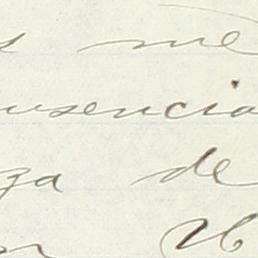 s me
usencia
za de